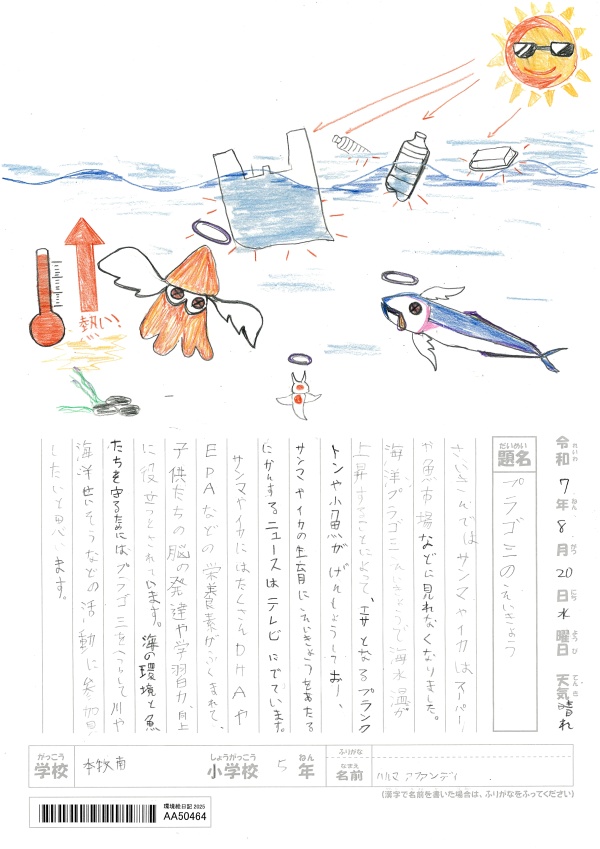 熱い!
令和7年8月20日水曜日 天気晴れ
れいわ ねん がつ にち ようび てんき
だいめい
題名
プラゴミのえいきょう
さいきんではサンマやイカはスーパー
や魚市場などに見れなくなりました。
海洋プラゴミえいきょうで海水温が
上昇することによって、エサとなるプランク
トンや小魚がげんしょうしており、
サンマやイカの生育にえいきょうをあたる
にかんするニュースはテレビにでています。
サンマやイカにはたくさんDHAや
EPAなどの栄養素がふくまれて、
子供たちの脳の発達や学習力、向上
に役せつとされています。海の環境と魚
たちを守るためには、プラゴミをへらして川や
海洋せいそうなどの活動に参加
したいと思います。
がっこう
学校
本牧南
しょうがっこう
小学校
5
ねん
年
ふりがな
なまえ
名前
ハルマ アファンディ
(漢字で名前を書いた場合は、ふりがなをふってください)
環境絵日記 2025
AA50464